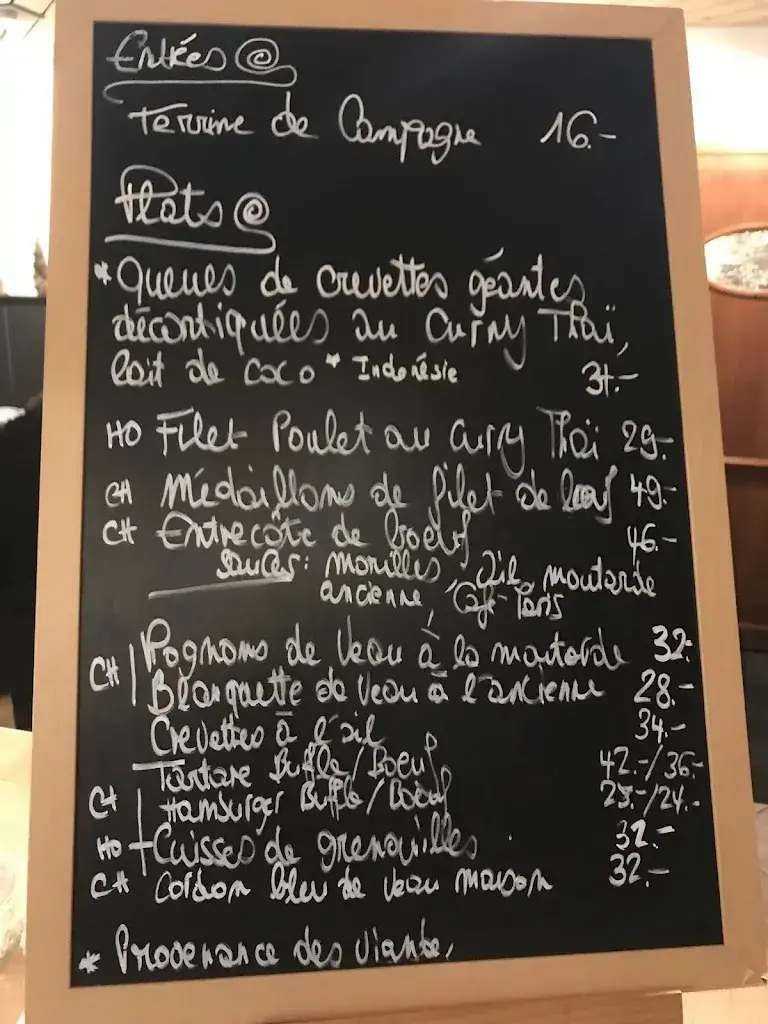 Entrées
Terrine de Campagne 16.-
Plats
* Queues de crevettes géantes
décortiquées au Curry Thaï,
lait de coco * Indonésie 34.-
HO Filet Poulet au Curry Thaï 29.-
CH Médaillons de filet de boeuf 49.-
CH Entrecôte de boeuf 46.-
sauces: morilles, ail, moutarde
ancienne, Café Paris
CH Rognons de Veau à la moutarde 32.-
Blanquette de Veau à l'ancienne 28.-
Crevettes à l'ail 34.-
Tartare Buffle/Boeuf 42.-/36.-
CH Hamburger Buffle/Boeuf /24.-
HO Cuisses de grenouilles 32.-
CH Cordon bleu de veau maison 32.-
* Provenance des viande,